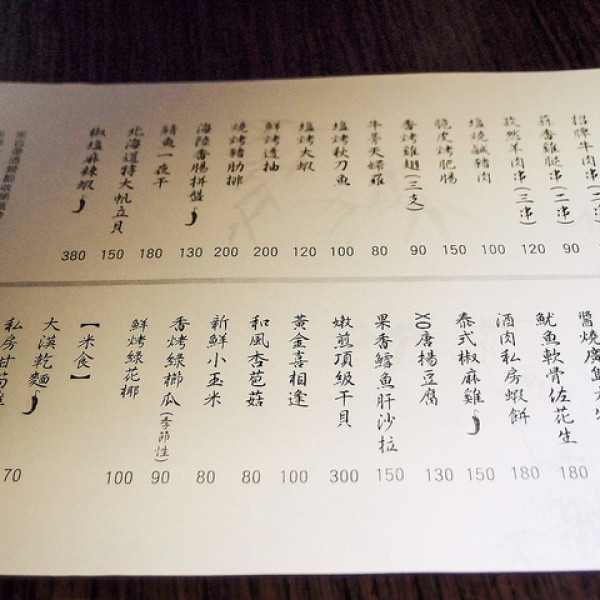 招牌牛肉串
蒜香雞腿串(二串) 90
孜然羊肉串(三串) 120
塩燒鹹豬肉 100
脆皮烤肥腸 150
香烤雞翅(三支) 90
牛蒡天婦羅 80
塩烤秋刀魚 100
塩烤大蝦 120
鮮烤透抽 200
燒烤豬肋排 200
海陸香腸拼盤 130
鯖魚一夜干 180
北海道特大帆立貝 150
椒塩麻辣蝦 380
醬燒廣島
魷魚軟骨佐花生 180
酒肉私房蝦餅 180
泰式椒麻雞 150
XO唐揚豆腐 130
果香鱈魚肝沙拉 150
嫩煎頂級干貝 300
黃金喜相逢 100
和風杏苞菇 80
新鮮小玉米 80
香烤綠櫛瓜(季節性) 90
鮮烤綠花椰 100
【米食】
大漠乾麵 70
私房甘筍